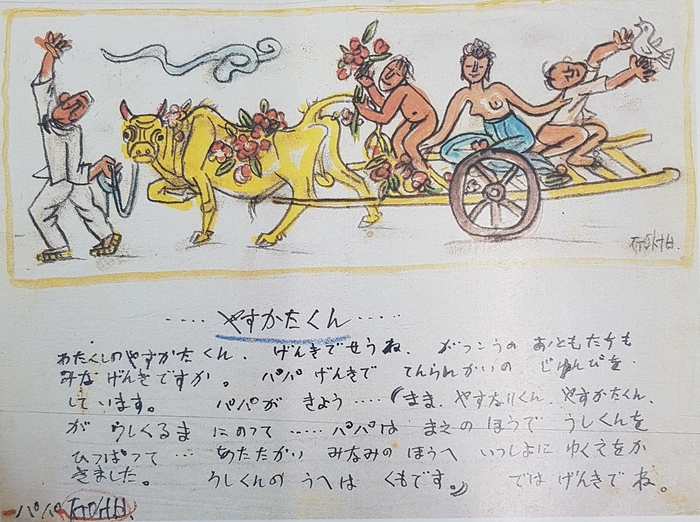 ㅈㅜㅇㅅㅓㅂ
..... やすかたくん .....
わたくしのやすかたくん、げんきでせうね。がっこうの おともたちも
みな げんきですか。パパ げんきで てんらんかいの じゅんびを
して います。パパが きょう ..... (まま、やすなりくん、やすかたくん、
が うしくるま にのって ..... パパは まえの ほうで うしくんを
ひっぱって ... あたたかい みなみのほうへ いっしよに ゆくえをか
きました。うしくんの うへは くもです。) では げんきで ね。
パパ ㅈㅜㅇㅅㅓㅂ